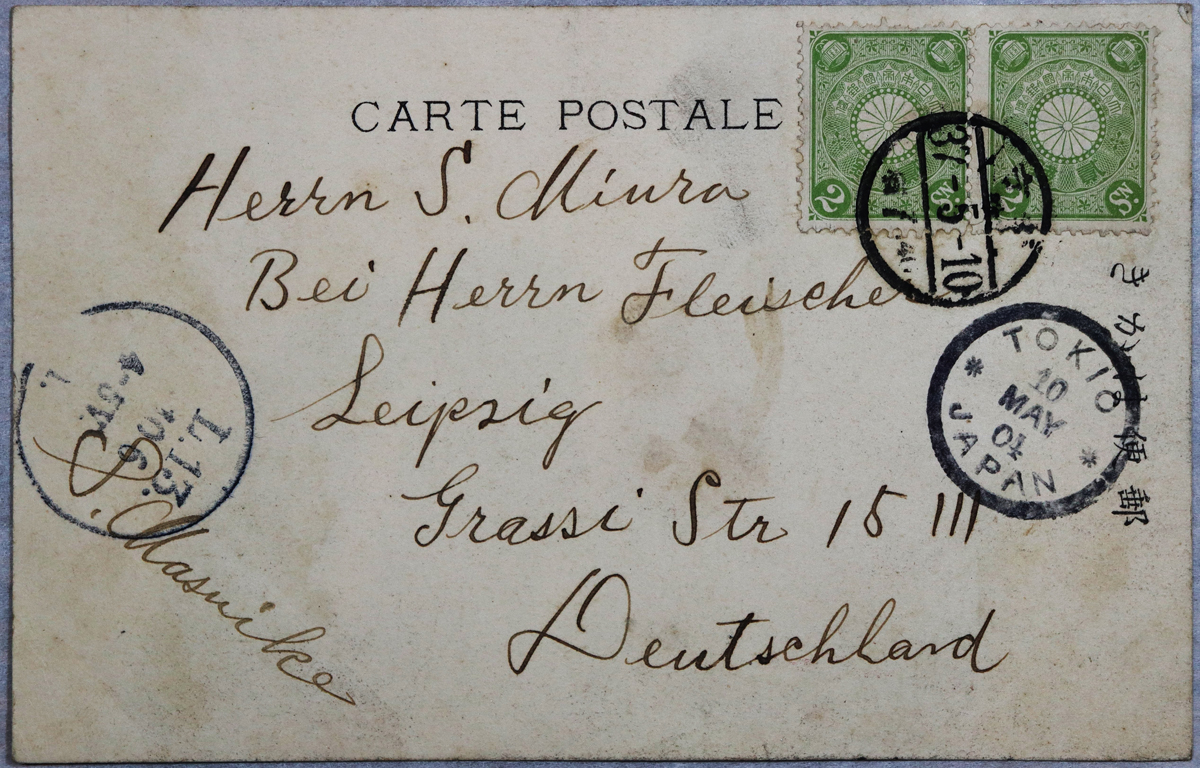 CARTE POSTALE
Herrn S. Miura
Bei Herrn Fleischer
Leipzig
Grassi Str 15 III
Deutschland
S. Masuike
2 Sɴ.
2 Sɴ.
37-5-10
TOKIO
10
MAY
04
JAPAN
きかは便郵
L.13.
10 6
4-5V.